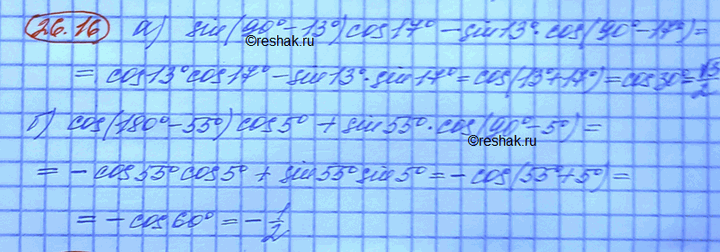 26.16 а) sin(90°-13°)cos17°-sin13°·cos(90°-17°)=
©reshak.ru
= cos13°cos17°-sin13°·sin17°=cos(13°+17°)=cos30°=√3/2
б) cos(180°-55°)cos5°+sin55°·cos(90°-5°)=
©reshak.ru
= -cos55°cos5°+sin55°sin5°=-cos(55°+5°)=
= -cos60°=-1/2